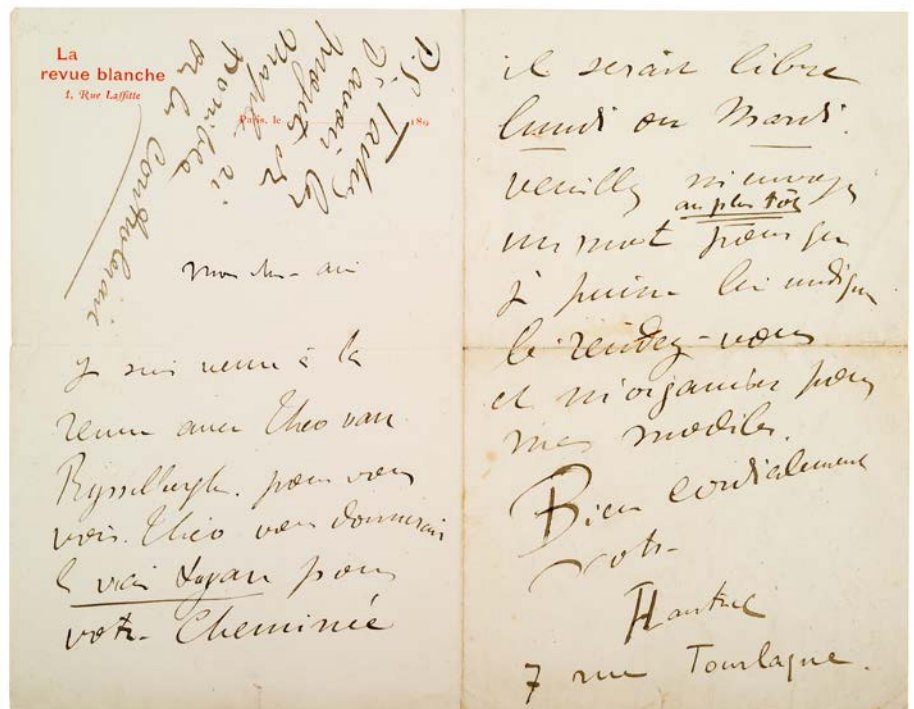 La
revue blanche
1, Rue Laffitte
Paris, le 189
P.S. Tachez
d'avoir les
projets de
Maple si
possible
ou le Contraire
Mon cher ami
Je suis venu à la
revue avec Theo van
Rysselberghe pour vous
voir. Théo vous donnerait
le vrai tuyau pour
votre Cheminée
il serait libre
lundi ou Mardi.
veuillez m'envoyer
au plus tôt
un mot pour que
je puisse lui indiquer
le rendez-vous
et m'organiser pour
mes modèles.
Bien cordialement
votre
HLautrec
7 rue Tourlaque.